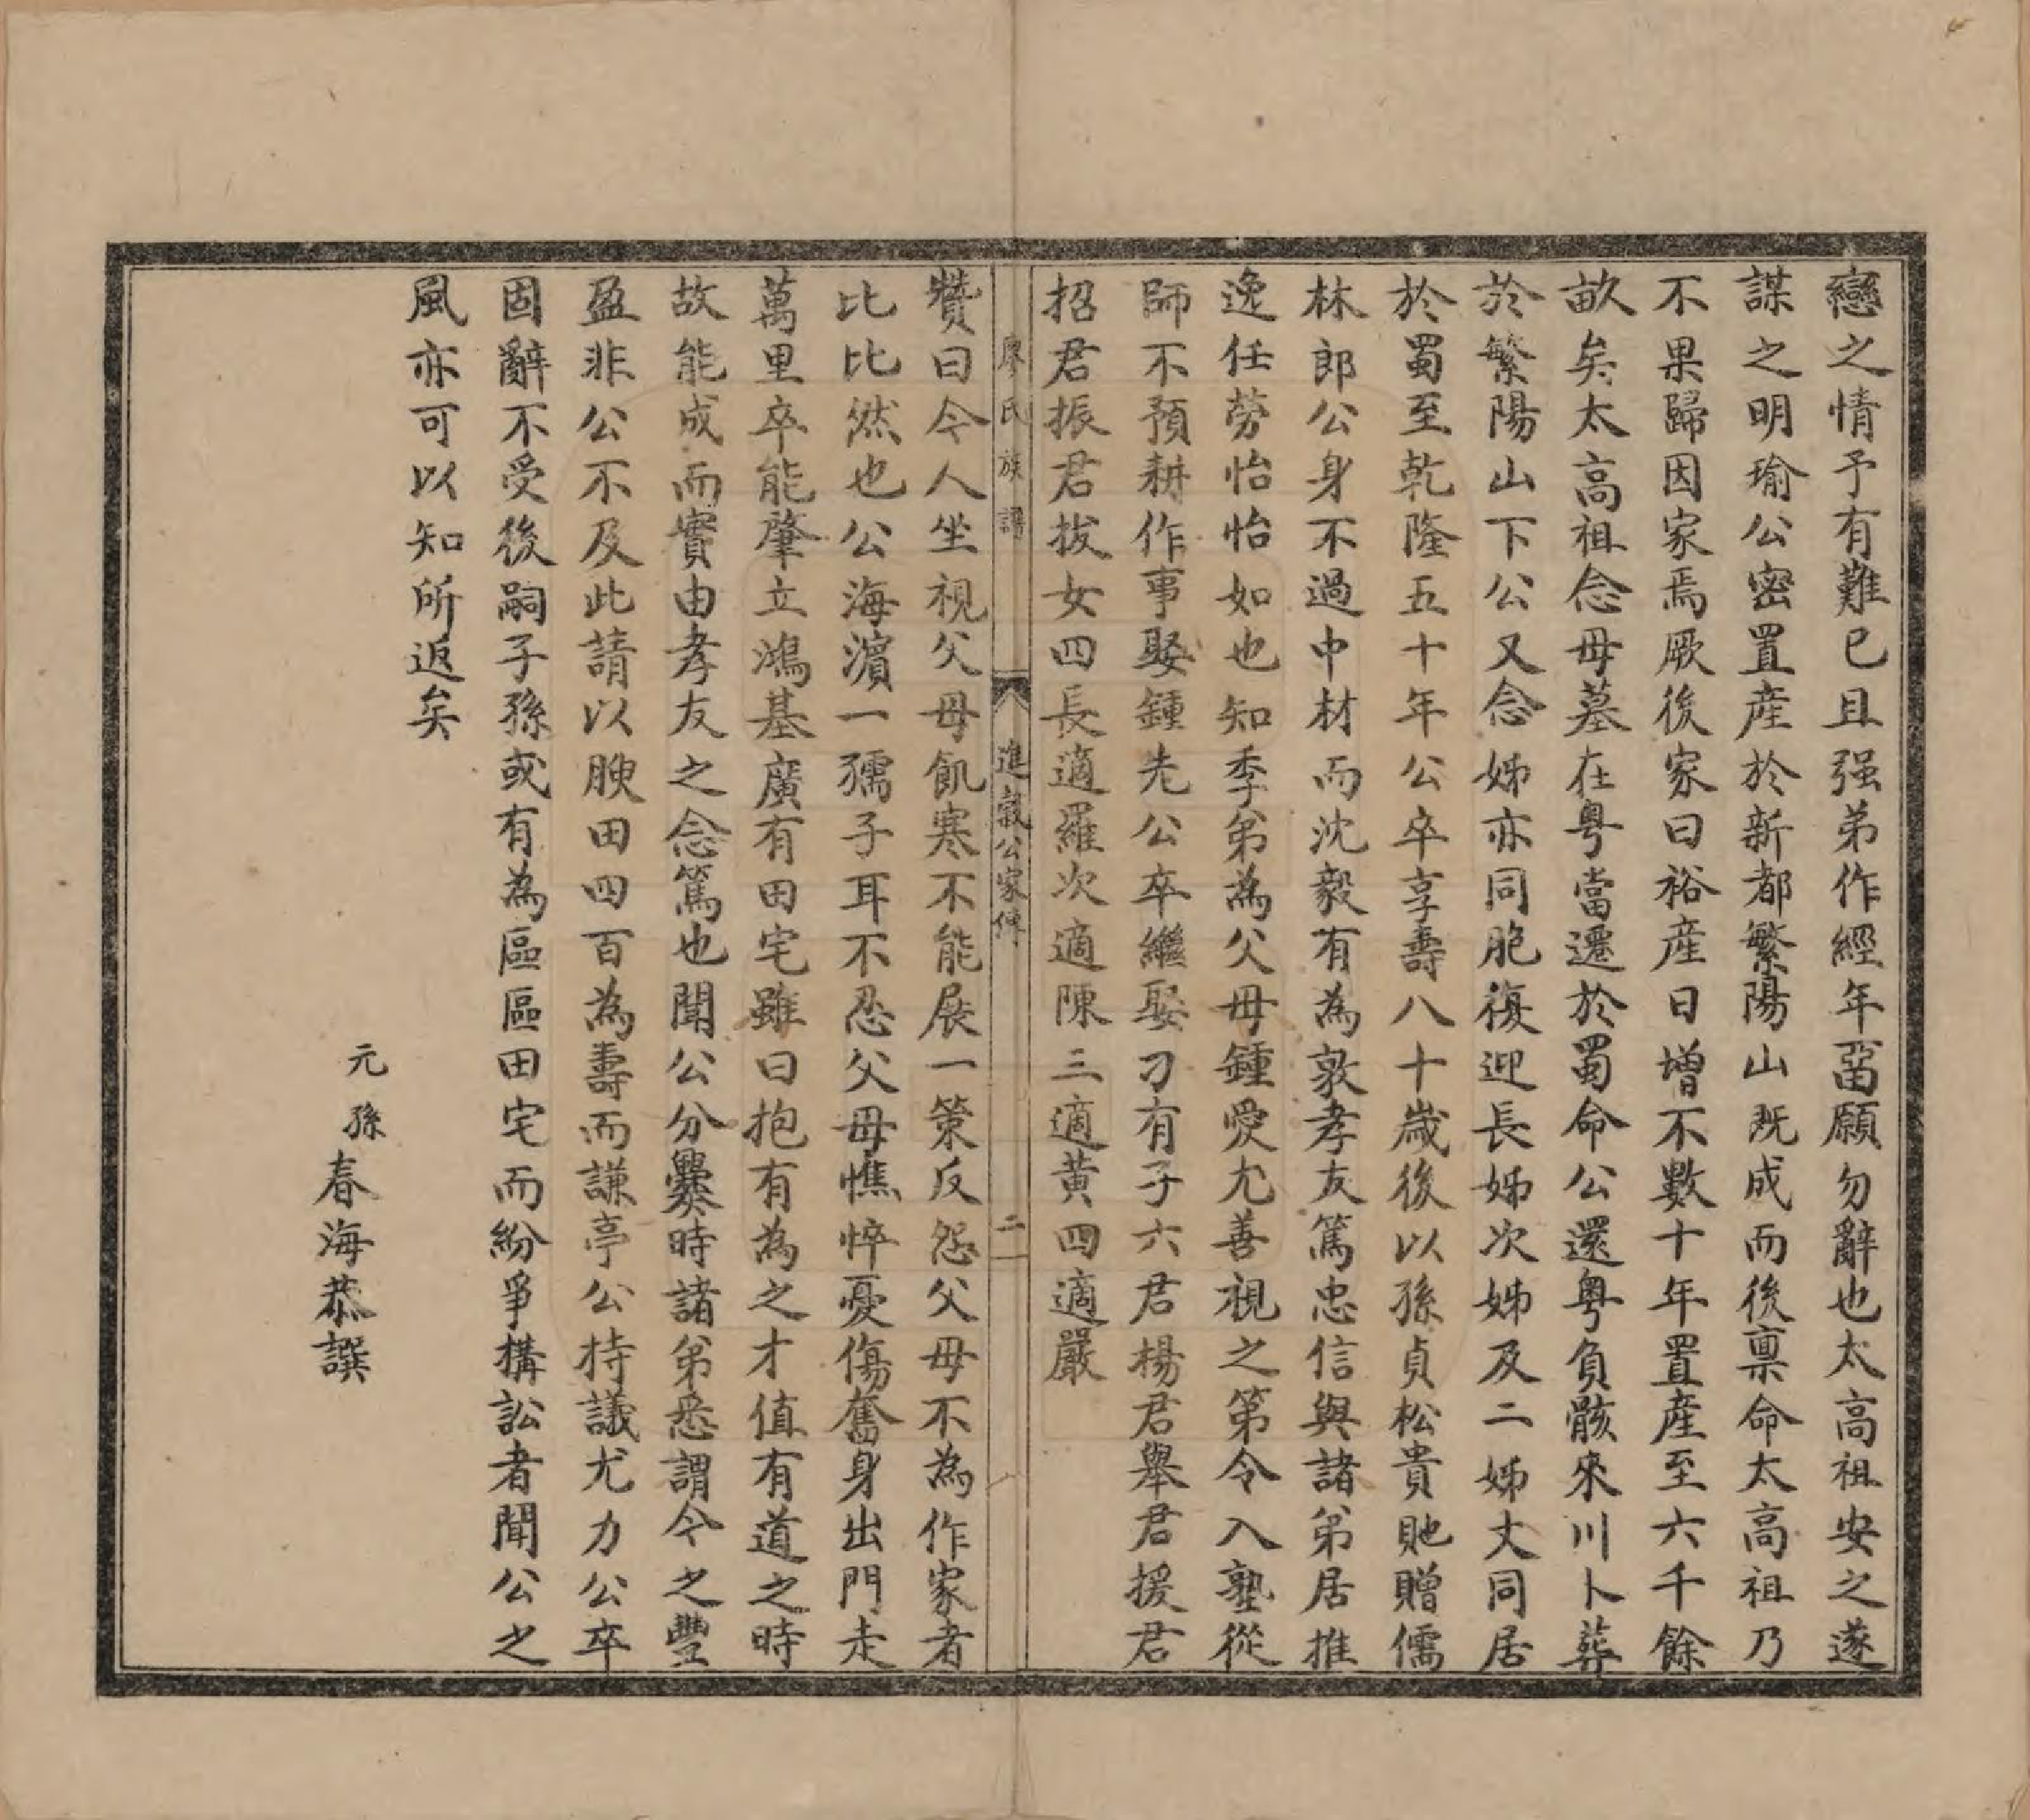 戀之情予有難已且强弟作經年畱願勿辭也太高祖安之遂
謀之明瑜公密置産於新都繁陽山既成而後稟命太高祖乃
不果歸因家焉厥後家曰裕産日增不數十年置產至六千餘
畝矣太高祖念母墓在粤當遷於蜀命公還粤負骸來川卜葬
於繁陽山下公又念姊亦同胞復迎長姊次姊及二姊丈同居
於蜀至乾隆五十年公卒享壽八十歲後以孫貞松貴貤贈儒
林郎公身不過中材而沈毅有為敦孝友篤忠信與諸弟居推
逸任勞怡怡如也知季弟為父母鍾愛尤善視之第令入塾從
師不預耕作事娶鍾先公卒繼娶刁有子六君楊君舉君援君
招君振君拔女四長適羅次適陳三適黃四適嚴
廖氏族譜 進嶯公家傳 二
贊曰今人坐視父母飢寒不能展一策反怨父母不為作家者
比比然也公海濵一孺子耳不忍父母憔悴憂傷奮身出門走
萬里卒能肇立鴻基廣有田宅雖曰抱有為之才值有道之時
故能成而實由孝友之念篤也聞公分爨時諸弟悉謂今之豐
盈非公不及此請以腴田四百為壽而謙亭公持議尤力公卒
固辭不受後嗣子孫或有為區區田宅而紛爭構訟者聞公之
風亦可以知所返矣
元孫春海恭譔